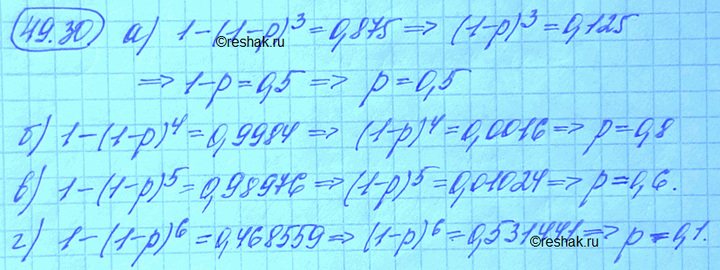 49.30 а) 1-(1-p)³=0,875 ⇒ (1-p)³=0,125
⇒ 1-p=0,5 ⇒ p=0,5
б) 1-(1-p)⁴=0,9984 ⇒ (1-p)⁴=0,0016 ⇒ p=0,8
в) 1-(1-p)⁵=0,98976 ⇒ (1-p)⁵=0,01024 ⇒ p=0,6.
г) 1-(1-p)⁶=0,468559 ⇒ (1-p)⁶=0,531441 ⇒ p=0,1.
©reshak.ru
©reshak.ru